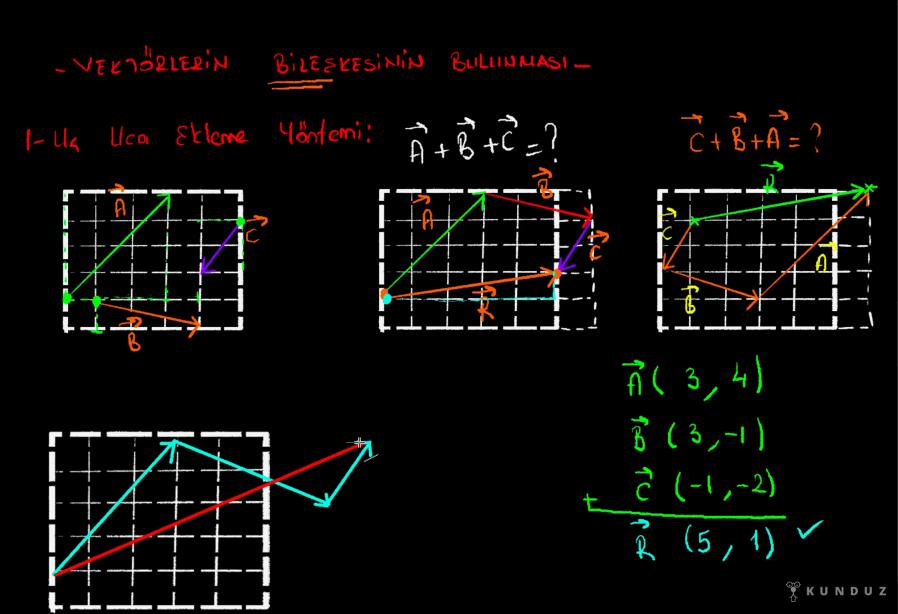 - VEKTÖRLERİN BİLEŞKESİNİN BULUNMASI -
1- Uç Uca Ekleme Yöntemi:
A + B + C = ?
C + B + A = ?
A
B
C
A
B
C
R
R
C
B
A
A ( 3 , 4 )
B ( 3 , -1 )
+ C ( -1 , -2 )
R ( 5 , 1 ) ✓
KUNDUZ